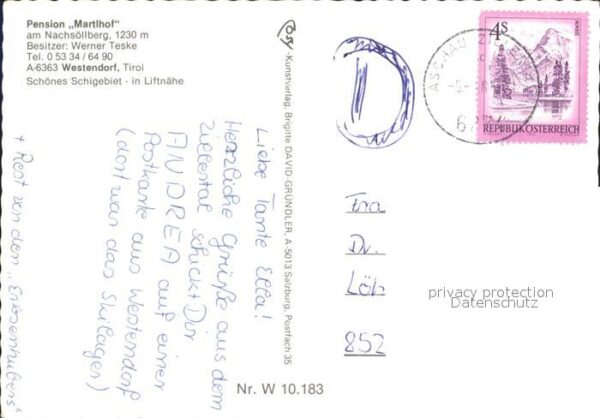 Pension „Martlhof"
am Nachsöllberg, 1230 m
Besitzer: Werner Teske
Tel. 0 53 34 / 64 90
A-6363 Westendorf, Tirol
Schönes Schigebiet - in Liftnähe
Liebe Tante Ella!
Herzliche Grüße aus dem
Zillertal schickt Dir
ANDREA auf einer
Postkarte aus Westendorf
(dort war das Skilager)
+ Rest von den „Erbsenhubers"
Kunstverlag, Brigitte DAVID-GRÜNDLER, A-5013 Salzburg, Postfach 35
Nr. W 10.183
D
4S
ALMSEE
REPUBLIK ÖSTERREICH
ASCHAU
Fra
Dr.
Löh
852
privacy protection
Datenschutz